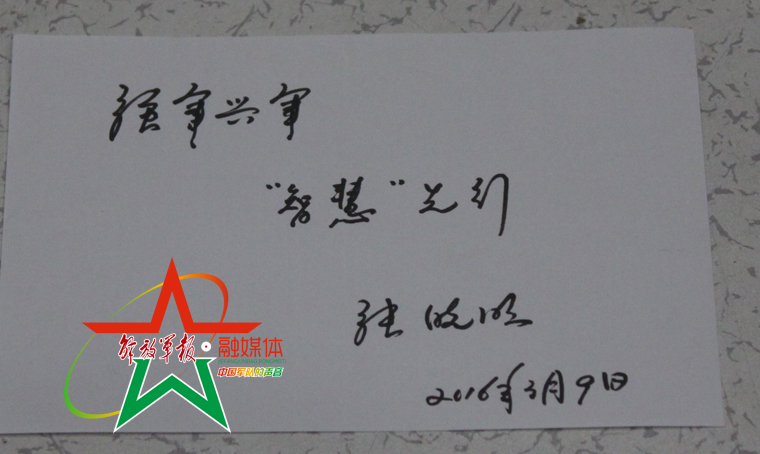 强军兴军
"智慧"先行
张皎明
2016年3月9日
解放军报·融媒体
中国军队的声音